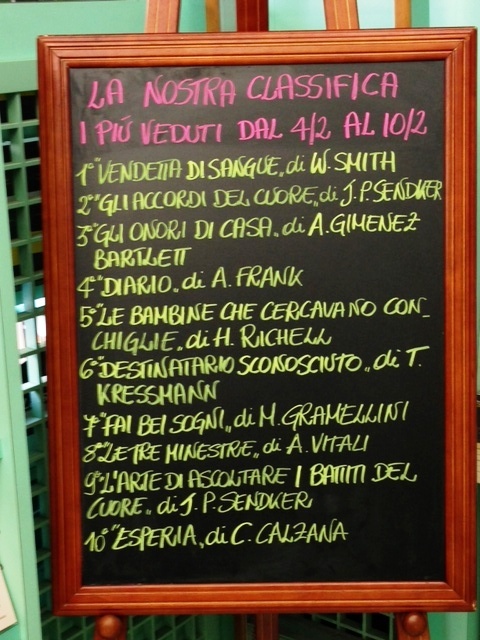 LA NOSTRA CLASSIFICA
I PIÚ VEDUTI DAL 4/2 AL 10/2
1° "VENDETTA DI SANGUE" di W. SMITH
2° "GLI ACCORDI DEL CUORE" di J.P. SENDKER
3° "GLI ONORI DI CASA" di A. GIMENEZ
BARTLETT
4° "DIARIO" di A. FRANK
5° "LE BAMBINE CHE CERCAVANO CON_
CHIGLIE" di H. RICHELL
6° "DESTINATARIO SCONOSCIUTO" di T.
KRESSMANN
7° "FAI BEI SOGNI" di M. GRAMELLINI
8° "LE TRE MINESTRE" di A. VITALI
9° "L'ARTE DI ASCOLTARE I BATTITI DEL
CUORE" di J.P. SENDKER
10° "ESPERIA" di C. CALZANA